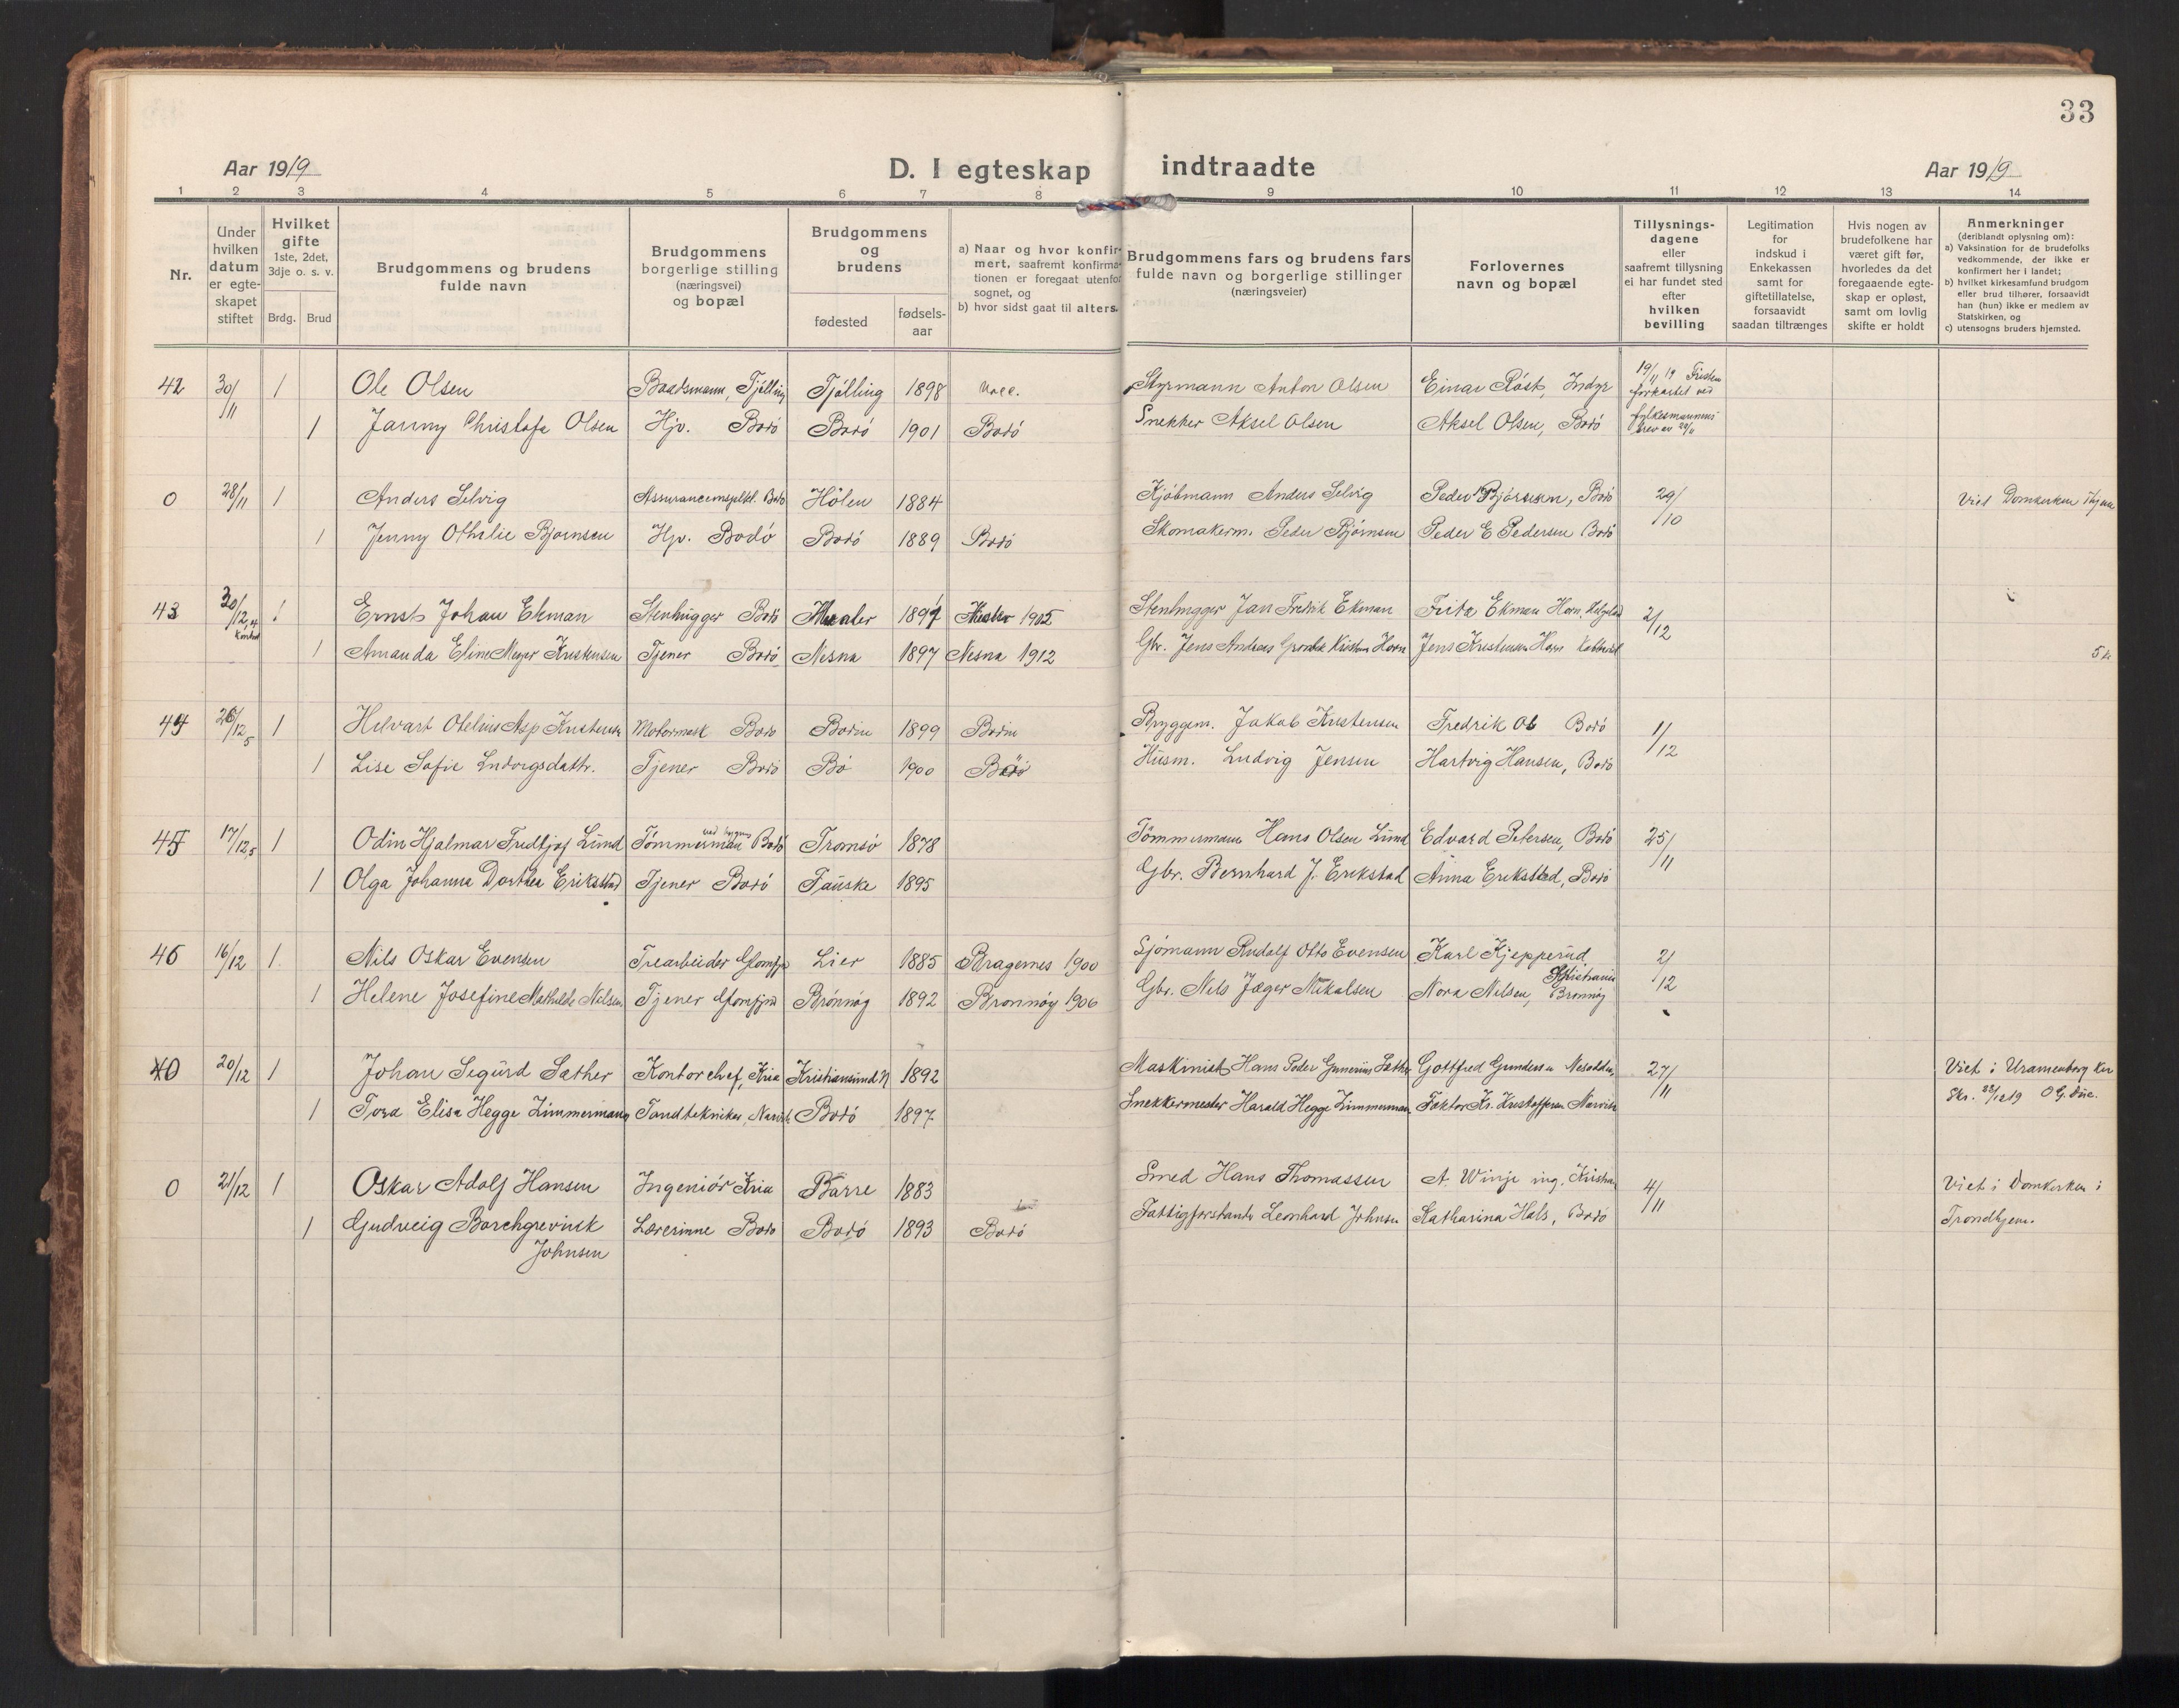 33
Aar 1919
D. I egteskap indtraadte
Aar 1919
1 2 3 4 5 6 7 8 9 10 11 12 13 14
Nr.
Under hvilken datum er egte-skapet stiftet
Hvilket gifte 1ste, 2det, 3dje o. s. v.
Brdg. Brud
Brudgommens og brudens fulde navn
Brudgommens borgerlige stilling (næringsvei) og bopæl
Brudgommens og brudens
fødested
fødsels-aar
a) Naar og hvor konfir-mert, saafremt konfirma-tionen er foregaat utenfor sognet, og
b) hvor sidst gaat til alters.
Brudgommens fars og brudens fars fulde navn og borgerlige stillinger (næringsveier)
Forlovernes navn og bopæl
Tillysnings-dagene eller saafremt tillysning ei har fundet sted efter hvilken bevilling
Legitimation for Indskud i Enkekassen samt for giftetillatelse, forsaavidt saadan tiltrænges
Hvis nogen av brudefolkene har været gift før, hvorledes da det foregaaende egte-skap er opløst, samt om lovlig skifte er holdt
Anmerkninger (deriblandt oplysning om):
a) Vaksination for de brudefolks vedkommende, der ikke er konfirmert her i landet;
b) hvilket kirkesamfund brudgom eller brud tilhører, forsaavidt han (hun) ikke er medlem av Statskirken, og
c) utensogns bruders hjemsted.
42 30/11 1 Ole Olsen Baadsmann, Tjølling Tjølling 1898 Styrmann Anton Olsen Einar Røst, Indyr 19/11 19 Fristen forkortet ved
1 Janny Christofa Olsen Hjv. Bodö Bodö 1901 Bodö Snekker Aksel Olsen Aksel Olsen, Bodö fylkesmannens brev av 29/11
0 28/11 1 Anders Selvig Assuranceinspektl. Bodö Hölen 1884 Kjöbmann Anders Selvig Peder Bjørnsen, Bodö 29/10 Viet Domkirken Thjem
1 Jenny Othilie Bjørnsen Hjv. Bodö Bodö 1889 Bodö Skomakerm. Peder Bjørnsen Peder E Pedersen Bodö
43 30/12 1 Ernst Johan Ekman Stenhugger Bodö 1897 1905 Stenhugger Jan Fredrik Ekman Frita Ekman Horn, Helgeland 2/12
1 Amanda Eline Meyer Kristensen Tjener Bodö Nesna 1897 Nesna 1912 Gbr. Jens Andreas Kristensen Horn Jens Kristensen Horn
44 26/12 5 1 Helvart Otelius Asp Kristensen Motormask Bodö Bodin 1899 Bodin Bryggem. Jakob Kristensen Fredrik Bodö 1/12
1 Lise Sofie Ludvigsdattr. Tjener Bodö Bö 1900 Bodö Husm. Ludvig Jensen Hartvig Hansen, Bodö
45 17/12,5 1 Odin Hjalmar Fridtjof Lund Tömmermann Bodö Tromsö 1878 Tömmermann Hans Olsen Lund Edvard Petersen, Bodö 25/11
1 Olga Johanna Dorthea Erikstad Tjener Bodö Fauske 1895 Gbr. Bernhard J. Erikstad Anna Erikstad, Bodö
46 16/12 1. Nils Oskar Evensen Trearbeider Glomfj. Lier 1885 Bragernes 1900 Sjömann Rudolf Otto Evensen Karl Kjepperud, Kristiania 2/12
1 Helene Josefine Mathilde Nielsen Tjener Glomfjord Brönnög 1892 Brønnøy 1906 Gbr. Nils Jæger Mikalsen Nora Nilsen, Brønnøy
0 20/12 1 Johan Sigurd Sæther Kontorchef, Kria Kristiansund N 1892 Maskinist Hans Peder Gunerius Sæther Gottfred Gundersen Nesodden 27/11 Viet i Uranienborg kir
1 Tora Elisa Hegge Zimmermann Tandtekniker, Narvik Bodö 1897 Snekkermester Harald Hegge Zimmermann Faktor Kr. Kristoffersen Narvik
0 21/12 1 Oskar Adolf Hansen Ingeniör Kria Borre 1883 Smed Hans Thomassen A. Winje ing. Kristian. 4/11 Viet i Domkirken i
1 Gudveig Borchgrevink Johnsen Lærerinne Bodö Bodö 1893 Bodö Fattigforstander Leonhard Johnsen Katharina Hals, Bodö Trondhjem.